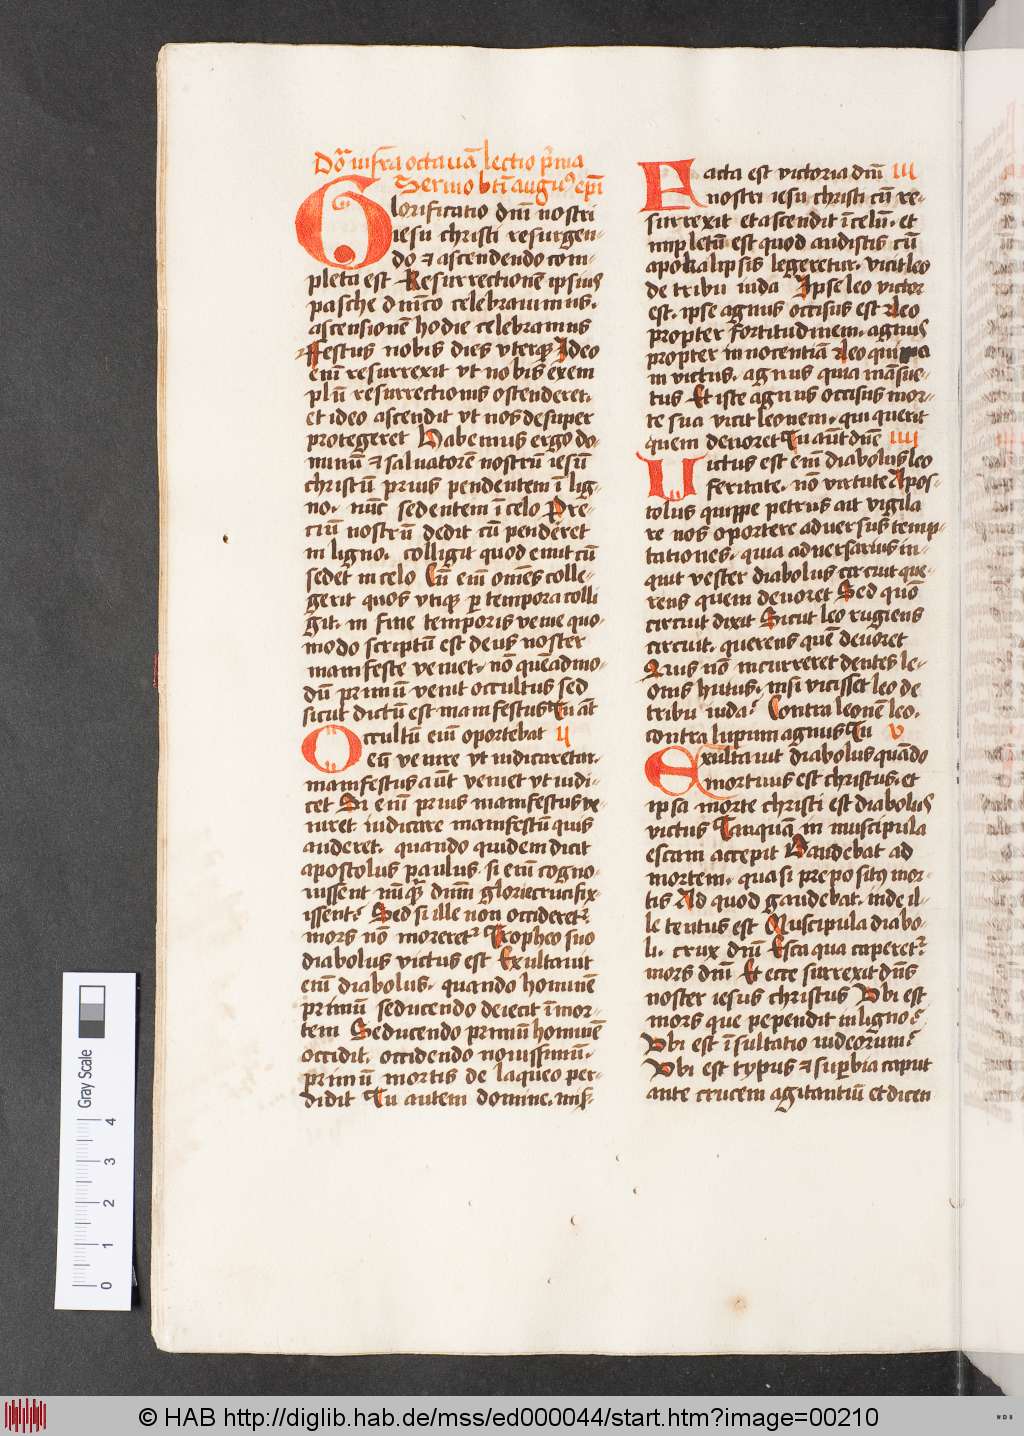 Dõr infra octauã lectio p̃ma
Sermo bti augu⁹ epi
Glorificatio dnĩ nostri
iesu christi resurgen-
do ⁊ ascendendo com-
pleta est Resurrectionem ipsius
pasche dnĩco celebrauimus.
ascensionẽ hodie celebramus
Festus nobis dies vterqꝫ Ideo
enĩ resurrexit vt nobis exem
plũ resurrectionis ostenderet.
et ideo ascendit vt nos desuper
protegeret Habemus ergo do-
minũ ⁊ saluatorẽ nostrũ iesũ
christũ prius pendentem ĩ lig-
no. nũc sedentem ĩ celo Pre-
cium nostrũ dedit cũ penderet
in ligno. colligit quod emit cũ
sedet in celo Cũ enĩ om̃es colle-
gerit quos vtiqꝫ ꝑ tempora colli
git. in fine temporis venie quo-
modo scriptũ est deus noster
manifeste veniet. nõ quẽadmo-
dũ primũ venit occultus sed
sicut dictũ est manifestus Tu aũt
Occultũ enĩ oportebat II
eũ venire vt iudicaretur.
manifestus aũt veniet vt iudi-
cet Si enĩ prius manifestus ve-
niret. iudicare manifestũ quis
auderet. quando quidem dicit
apostolus paulus. si enĩ cogno-
uissent nũqꝫ dnm̃ glorie crucifix-
issent? Sed si ille non occideret̃
mors nõ moreret̃ Tropheo suo
diabolus victus est Exultauit
enĩ diabolus. quando hominẽ
primũ seducendo deiecit ĩ mor-
tem Seducendo primũ hominẽ
occidit. occidendo nouissimũ.
primũ mortis de laqueo per-
didit Tu autem domine. mis̃.
Facta est victoria dnĩ III
nostri iesu christi cũ re-
surrexit et ascendit ĩ celũ. et
impletũ est quod audistis cũ
apokalipsis legeretur. vicit leo
de tribu iuda Ipse leo victor
est. ipse agnus occisus est Leo
propter fortitudinem. agnus
propter innocentiã Leo quia
in victus. agnus quia mãsue-
tus Et iste agnus occisus mor-
te sua vicit leonem. qui querit
quem deuoret Tu aũt dñe IIII
Uictus est enĩ diabolus leo
feritate. nõ virtute Apos-
tolus quippe petrus ait vigila
re nos oportere aduersus temp-
tationes. quia aduersarius in-
quit vester diabolus circuit que-
rens quem deuoret Sed quõ
circuit dixit Sicut leo rugiens
circuit. querens quẽ deuoret
Quis nõ incurreret dentes le-
onis huius. nisi vicisset leo de
tribu iuda? Contra leonẽ leo.
contra lupum agnus Tu V
Exultauit diabolus quãdo
mortuus est christus. et
ipsa morte christi est diabolus
victus Tanquã in muscipula
escam accepit Gaudebat ad
mortem. quasi prepositus mor-
tis Ad quod gaudebat. inde il-
le tentus est Muscipula diabo-
li. crux dnĩ Esca qua caperet̃.
mors dnĩ Et ecce surrexit dñs
noster iesus christus Vbi est
mors que pependit in ligno?
Vbi est ĩsultatio iudeorum?
Vbi est typus ⁊ suꝑbia caput
ante crucem agitantiũ et dicen
Gray Scale
0 1 2 3 4
© HAB http://diglib.hab.de/mss/ed000044/start.htm?image=00210